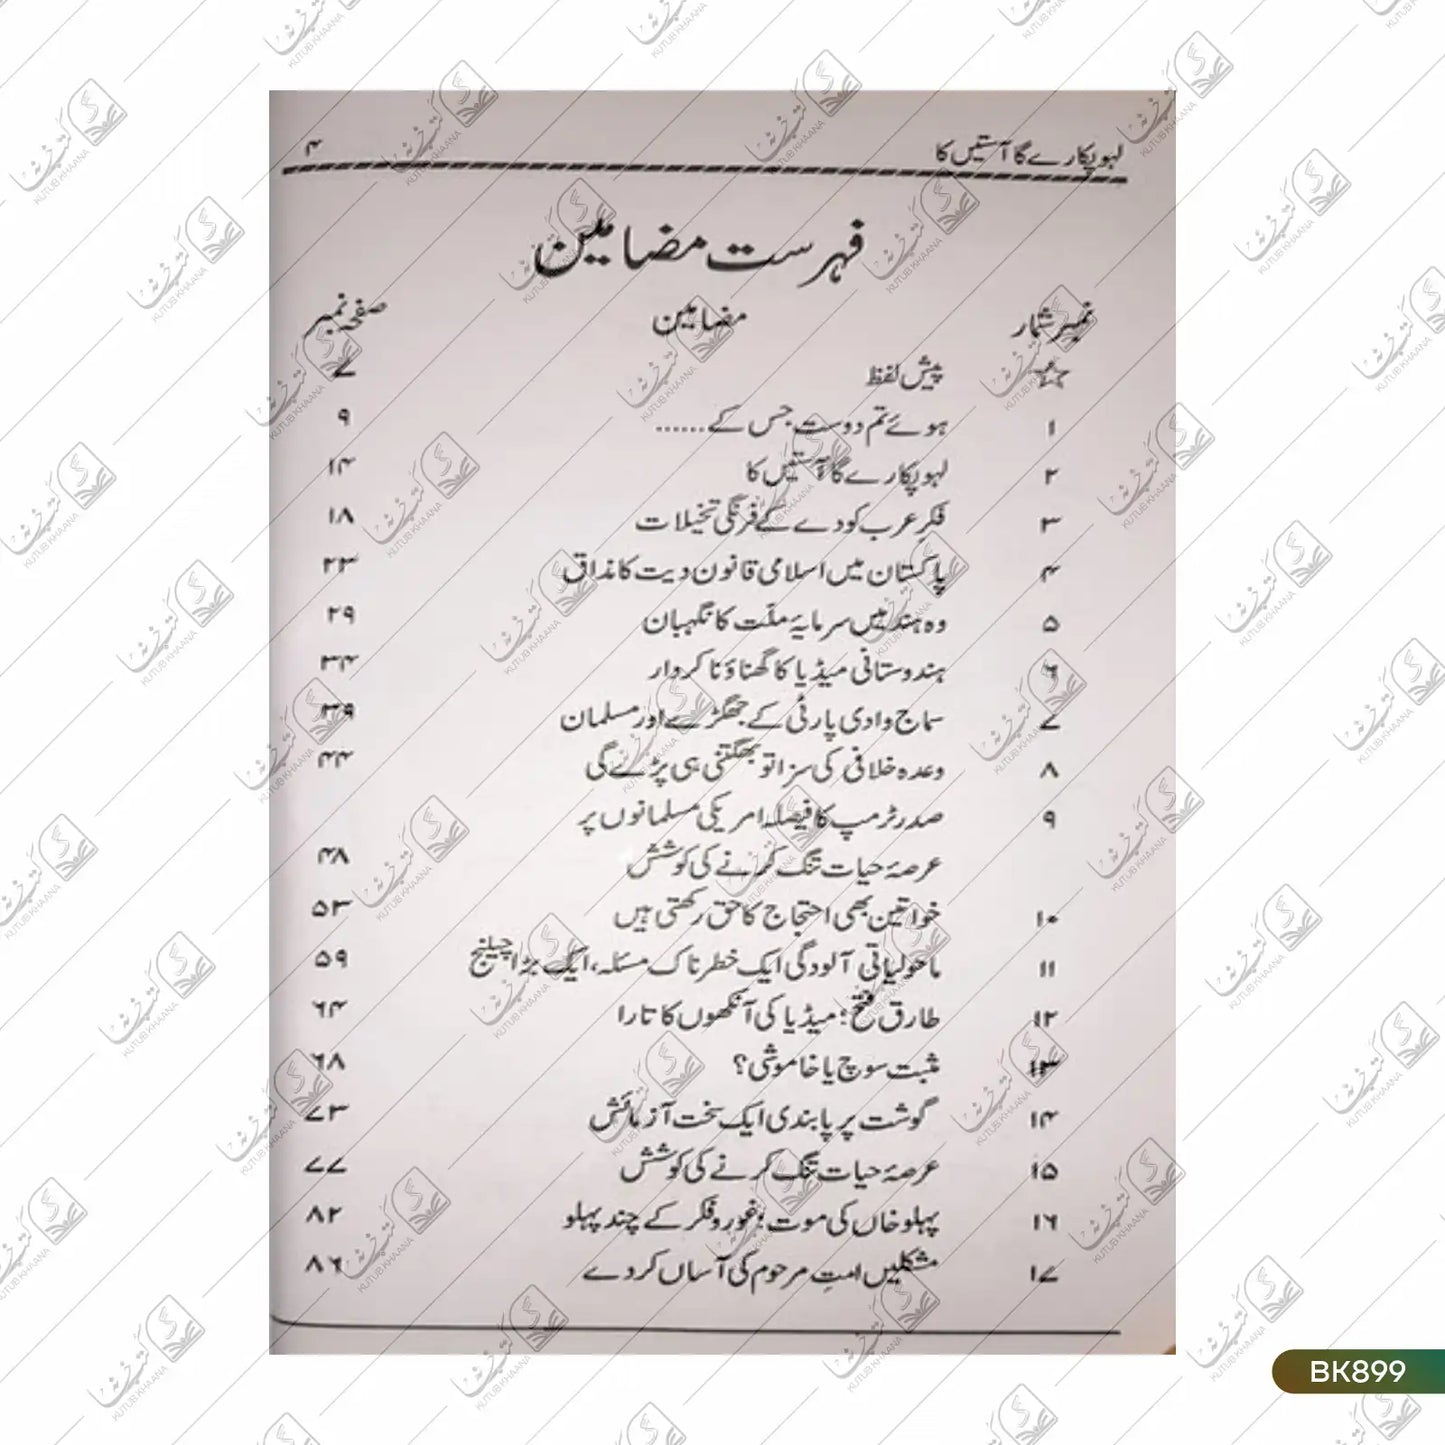 لہو پکارے گا آستیں کا ۴
فہرست مضامین
نمبر شمار مضامین صفحہ نمبر
☆ پیش لفظ ۷
۱ ہوئے تم دوست جس کے ...... ۹
۲ لہو پکارے گا آستیں کا ۱۴
۳ فکرِ عرب کو دے کے فرنگی تخیلات ۱۸
۴ پاکستان میں اسلامی قانون دیت کا مذاق ۲۳
۵ وہ ہند میں سرمایۂ ملّت کا نگہبان ۲۹
۶ ہندوستانی میڈیا کا گھناؤنا کردار ۳۴
۷ سماج وادی پارٹی کے جھگڑے اور مسلمان ۳۹
۸ وعدہ خلافی کی سزا تو بھگتنی ہی پڑے گی ۴۴
۹ صدر ٹرمپ کا فیصلہ امریکی مسلمانوں پر
عرصۂ حیات تنگ کرنے کی کوشش ۴۸
۱۰ خواتین بھی احتجاج کا حق رکھتی ہیں ۵۳
۱۱ ماحولیاتی آلودگی ایک خطرناک مسئلہ، ایک بڑا چیلنج ۵۹
۱۲ طارق فتح: میڈیا کی آنکھوں کا تارا ۶۴
۱۳ مثبت سوچ یا خاموشی؟ ۶۸
۱۴ گوشت پر پابندی ایک سخت آزمائش ۷۳
۱۵ عرصۂ حیات تنگ کرنے کی کوشش ۷۷
۱۶ پہلو خاں کی موت: غور و فکر کے چند پہلو ۸۲
۱۷ مشکلیں امتِ مرحوم کی آساں کردے ۸۶
BK899